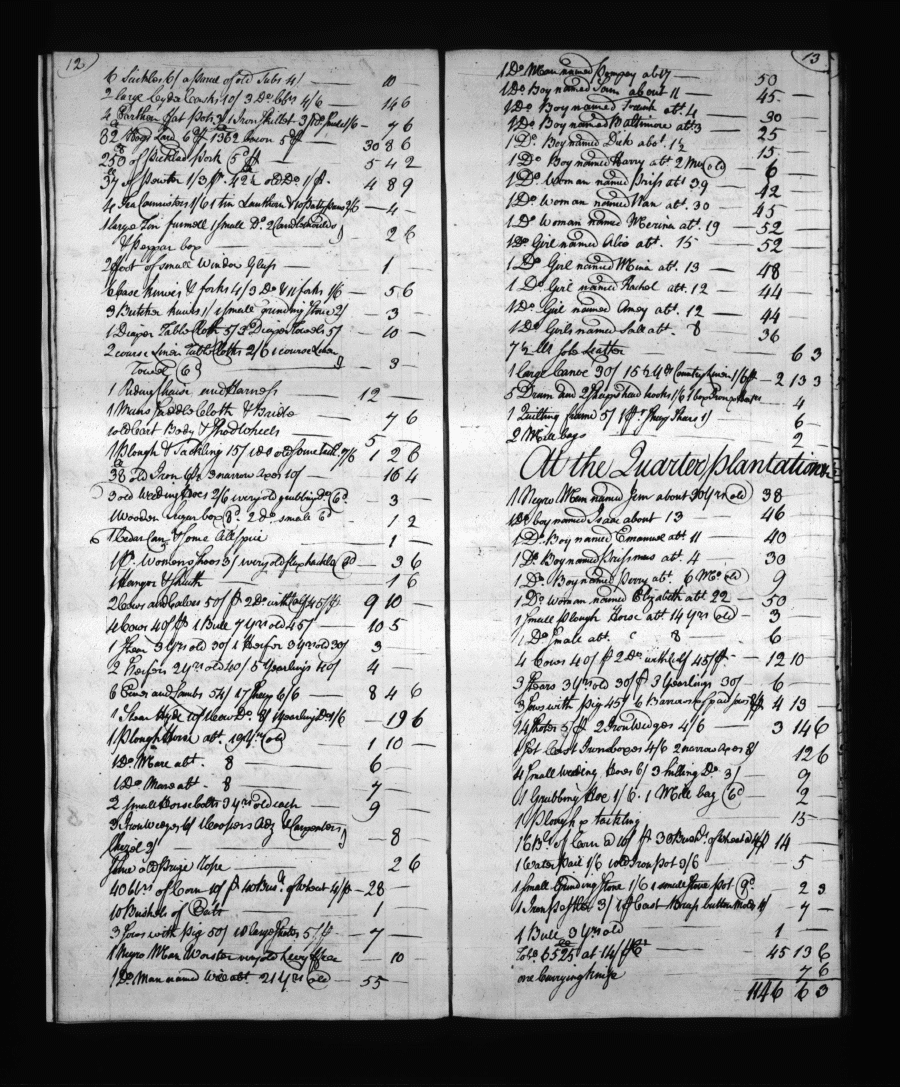 12
6 Sickles 6/ a parcel of old Tubs 4/ — 10
2 large Cyder Casks 10/ 3 Do bbrs 4/6 — 14 6
4 Earthen fat Pots 3/ 1 Iron Skillet 3 1/6 — 7 6
82 Hogs Lard 6d 1362 bacon 5d 30 8 6
250 of Pickled Pork 5d 5 4 2
37 of Pewter 1/3 42½ old Do 1/ 4 8 9
4 Tea Cannisters 1/6 1 tin Lanthorn & 10 Patty pans 2/6 — 4 —
1 large Tin funnell 1 small Do 2 Candlemoulds
& Pepper box 2 6
2 foot of small Window Glass — 1 —
6 Case knives & forks 4/ 3 Do & 11 forks 1/6 — 5 6
3 Butcher knives 1/ 1 small grinding stone 2/ — 3 —
1 Diaper Table Cloth 5/ 3 Diaper Towels 5/ 10 —
2 course Linen Table Cloths 2/6 1 course Linen
Towel 6d — 3 —
1 Riding Chair and Harness 12 —
1 Mans Saddle Cloth & Bridle 7 6
1 old Cart Body & Shod Wheels — 5 —
1 Plough & Tackling 15/ 1 Do old 7/6 1 2 6
38 old Iron 3 narrow Axes 10/ — 16 4
3 old Weeding Hoes 2/6 1 very old grubbing Do 6d — 3 —
1 Wooden Sugar box 8d 2 do small 6d — 1 2
1 Cedar Can & some Allspice — 1 —
1 Pr Womens shoes 3/ 1 very old flax hackle 6d — 3 6
1 Hanger & sheath — 1 6
2 Cows and Calves 50/ 2 Do with Calf 45/ 9 10 —
4 Cows 40/ 1 Bull 7 yrs old 45/ — 10 5
1 Steer 3 yrs old 30/ 1 Heifer 3 yrs old 30/ 3 —
2 Heifers 2 yrs old 40/ 5 Yearlings 40/ 4 —
6 Ewes and Lambs 54/ 17 Sheep 6/6 — 8 4 6
1 Steer Hyde 1 Cow Do 8/ Yearling Do 1/6 — 19 6
1 Plough Horse abt. 19 yrs old 1 10 —
1 Do Mare abt. 8 — 6 —
1 Do Mare abt 8 — 7 —
2 small Horse Colts 3 yrs old each — 9 —
3 Iron Wedges 6/ 1 Coopers Adz & Carpenters
Chizel 2/ — 8 —
some old Seize Rope — 2 6
40 bbrs of Corn 10/ 40 Bush of Wheat 4/ — 28 —
10 Bushels of Salt — 1 —
3 Sows with Pig 50/ 18 large Shotes 5/ — 7 —
1 Negro Man Worster very old — 10 —
1 Do Man named Will abt. 21 yrs old — 55 —
13
1 Do Man named Pompey abt 17 — 50 —
1 Do Boy named Sam about 11 — 45 —
1 Do Boy named Frank abt. 4 30
1 Do Boy named Baltimore abt 3 — 25
1 Do Boy named Dick abot. 1½ 15 —
1 Do Boy named Harry abt 2 Mos old — 6 —
1 Do Woman named Priss abt 39 — 42
1 Do Woman named Nan abt. 30 — 45 —
1 Do Woman named Merina abt. 19 — 52 —
1 Do Girl named Alia abt. 15 — 52
1 Do Girl named Mina abt. 13 — 48
1 Do Girl named Rachel abt. 12 — 44 —
1 Do Girl named Amey abt. 12 — 44
1 Do Girls named Sall abt. 8 36
7½ lb Sole Leather — 6 3
1 large Canoe 30/ 15½ — 2 13 3
5 Drum and 2 Sheepshead hooks 1/6 — 4
1 Quilting frame 5/ 1 pr Sheep Shears 1/ 6 —
2 Mill bags — 2
At the Quarter plantation
1 Negro Man named Jem about 30 yrs old 38
1 Do boy named Isaac about 13 — 46
1 Do Boy named Emanuel abt 11 — 40
1 Do Boy named Prissmus abt. 4 — 30
1 Do Boy named Perry abt. 6 Mos old 9
1 Do Woman named Elizabeth abt 22 — 50
1 small Plough Horse abt. 14 yrs old 3
1 Do Small abt. " 8 — 6 —
4 Cows 40/ 2 Do with Calf 45/ — 12 10
3 Stears 3 yrs old 30/ 3 Yearlings 30/ 6 —
3 Sows with pig 45/ 6 Barrows 4 13 —
14 Shotes 5/ 2 Iron Wedges 4/6 3 14 6
1 Pot 4/6 2 narrow Axes 8/ 12 6
4 Small Weeding Hoes 6/ 3 hilling Do 3/ — 9
1 Grubbing Hoe 1/6. 1 Mill bag 6d — 2
1 Plough & tackling — 15 —
16 Bls of Corn a 10/ 30 Bush. of Wheat 14 —
1 Water Pail 1/6 1 old Iron Pot 3/6 — 5
1 small Grinding Stone 1/6 1 small Stone Pot 9d — 2 3
1 Iron Pestle 3/ — 7 —
1 Bull 3 yrs old — 1 —
Tobo. 6525 at 14/ 45 13 6
one Currying knife 7 6
1146 6 3